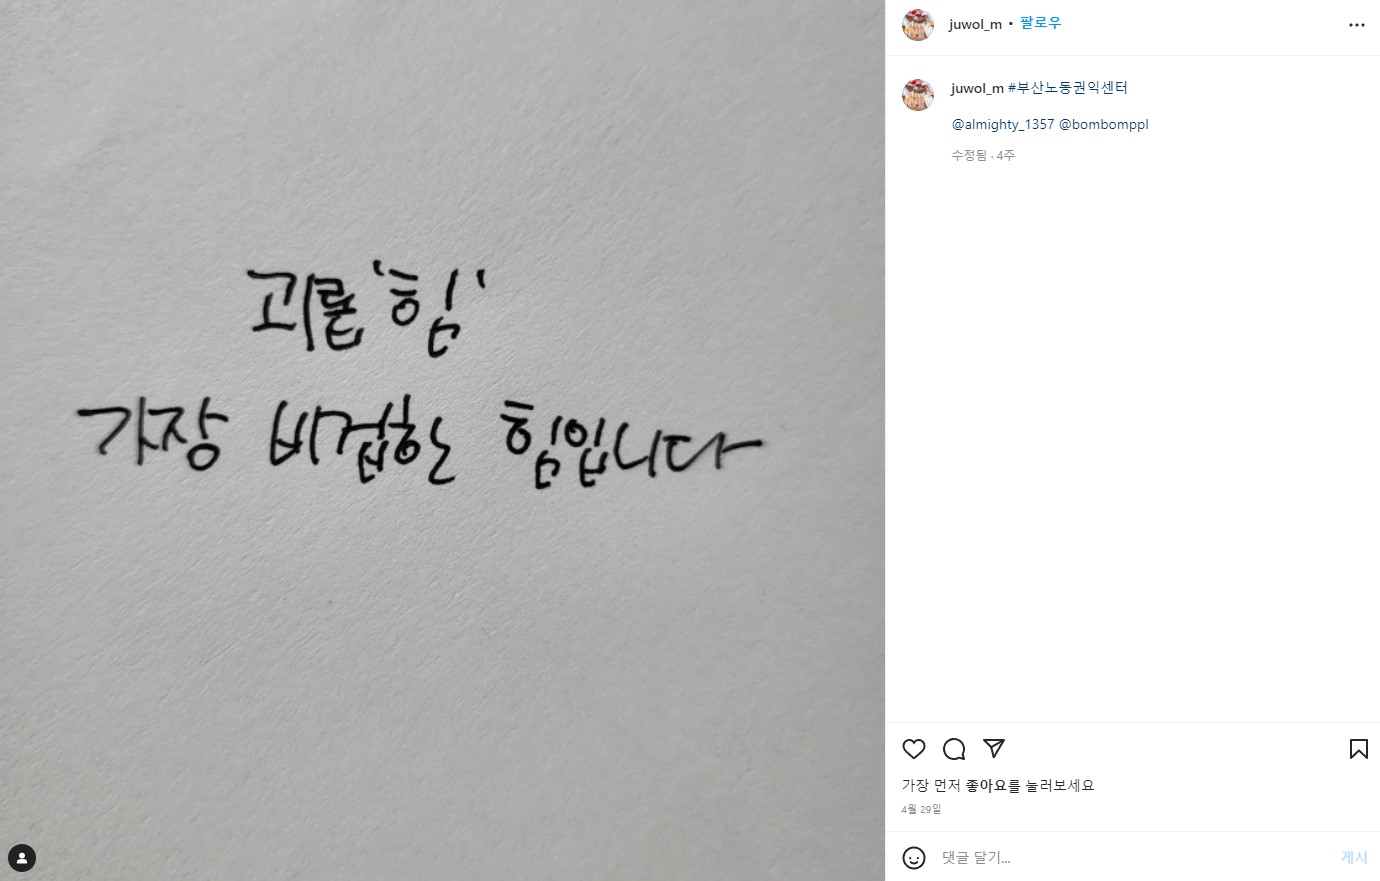 괴롭'힘'
가장 비겁한 힘입니다
juwol_m • 팔로우
juwol_m #부산노동권익센터
@almighty_1357 @bombomppl
수정됨 · 4주
가장 먼저 좋아요를 눌러보세요
4월 29일
댓글 달기...
게시